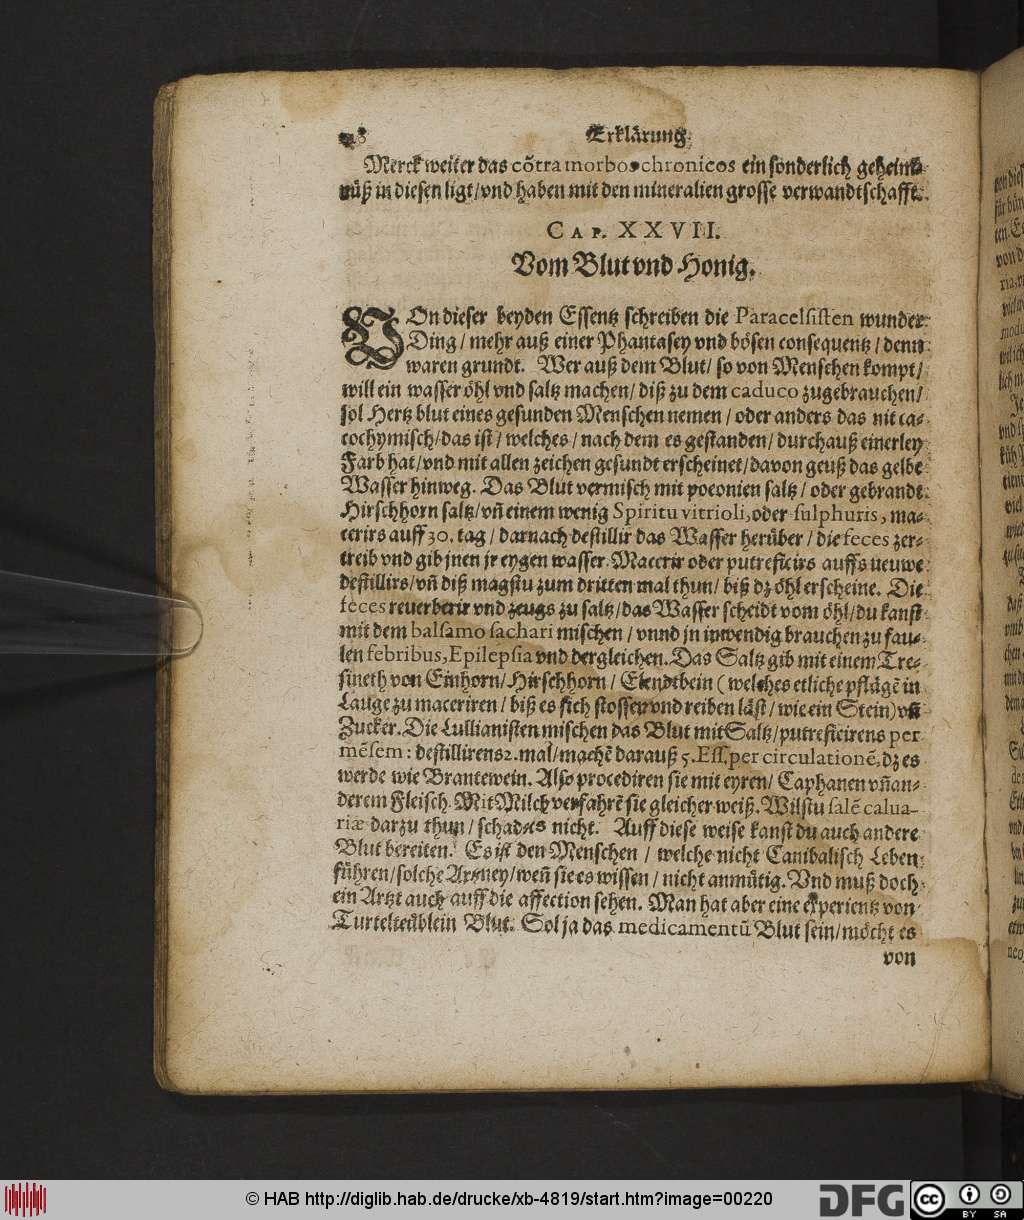 Erklärung
Merck weiter das cõtra morbos chronicos ein sonderlich geheim-
nüß in diesen ligt/vnd haben mit den mineralien grosse verwandtschafft.
CAP. XXVII.
Vom Blut vnd Honig.
VOn dieser beyden Essentz schreiben die Paracelsisten wunder
Ding / mehr auß einer Phantasey vnd bösen consequentz / denn
waren grundt. Wer auß dem Blut/ so von Menschen kompt/
will ein wasser öhl vnd saltz machen/ diß zu dem caduco zugebrauchen/
sol Hertz blut eines gesunden Menschen nemen / oder anders das nit ca-
cochymisch/das ist / welches / nach dem es gestanden/ durchauß einerley
Farb hat/vnd mit allen zeichen gesundt erscheinet/davon geuß das gelbe
Wasser hinweg. Das Blut vermisch mit poeonien saltz / oder gebrandt
Hirschhorn saltz/vñ einem wenig Spiritu vitrioli, oder sulphuris, ma-
cerirs auff 30. tag / darnach destillir das Wasser herüber / die feces zer-
treib vnd gib jnen jr eygen wasser. Macerir oder putreficirs auffs neuwe
destillirs/vñ diß magstu zum dritten mal thun/ biß dz öhl erscheine. Die
feces reuerberir vnd zeugs zu saltz/das Wasser scheidt vom öhl/du kanst
mit dem balsamo sachari mischen / vnnd jn inwendig brauchen zu fau-
len febribus, Epilepsia vnd dergleichen. Das Saltz gib mit einem Tre-
sineth von Einhorn/ Hirschhorn / Elendtbein ( welches etliche pflägẽ in
Lauge zu maceriren / biß es sich stossen vnd reiben läst / wie ein Stein) vñ
Zucker. Die Lullianisten mischen das Blut mit Saltz/putreficirens per
mẽsem: destillirens 2. mal/machẽ darauß 5. Ess. per circulationẽ, dz es
werde wie Brantewein. Also procediren sie mit eyren/ Caphanen vñ an-
derem Fleisch. Mit Milch verfahrẽ sie gleicher weiß. Wilstu salẽ calua-
riæ darzu thun / schadets nicht. Auff diese weise kanst du auch andere
Blut bereiten. Es ist den Menschen / welche nicht Canibalisch Leben
führen/solche Artzney/weñ sie es wissen / nicht anmütig. Vnd muß doch
ein Artzt auch auff die affection sehen. Man hat aber eine experientz von
Turteltäublein Blut. Sol ja das medicamentũ Blut sein/möcht es
von
© HAB http://diglib.hab.de/drucke/xb-4819/start.htm?image=00220
DFG
cc
BY SA